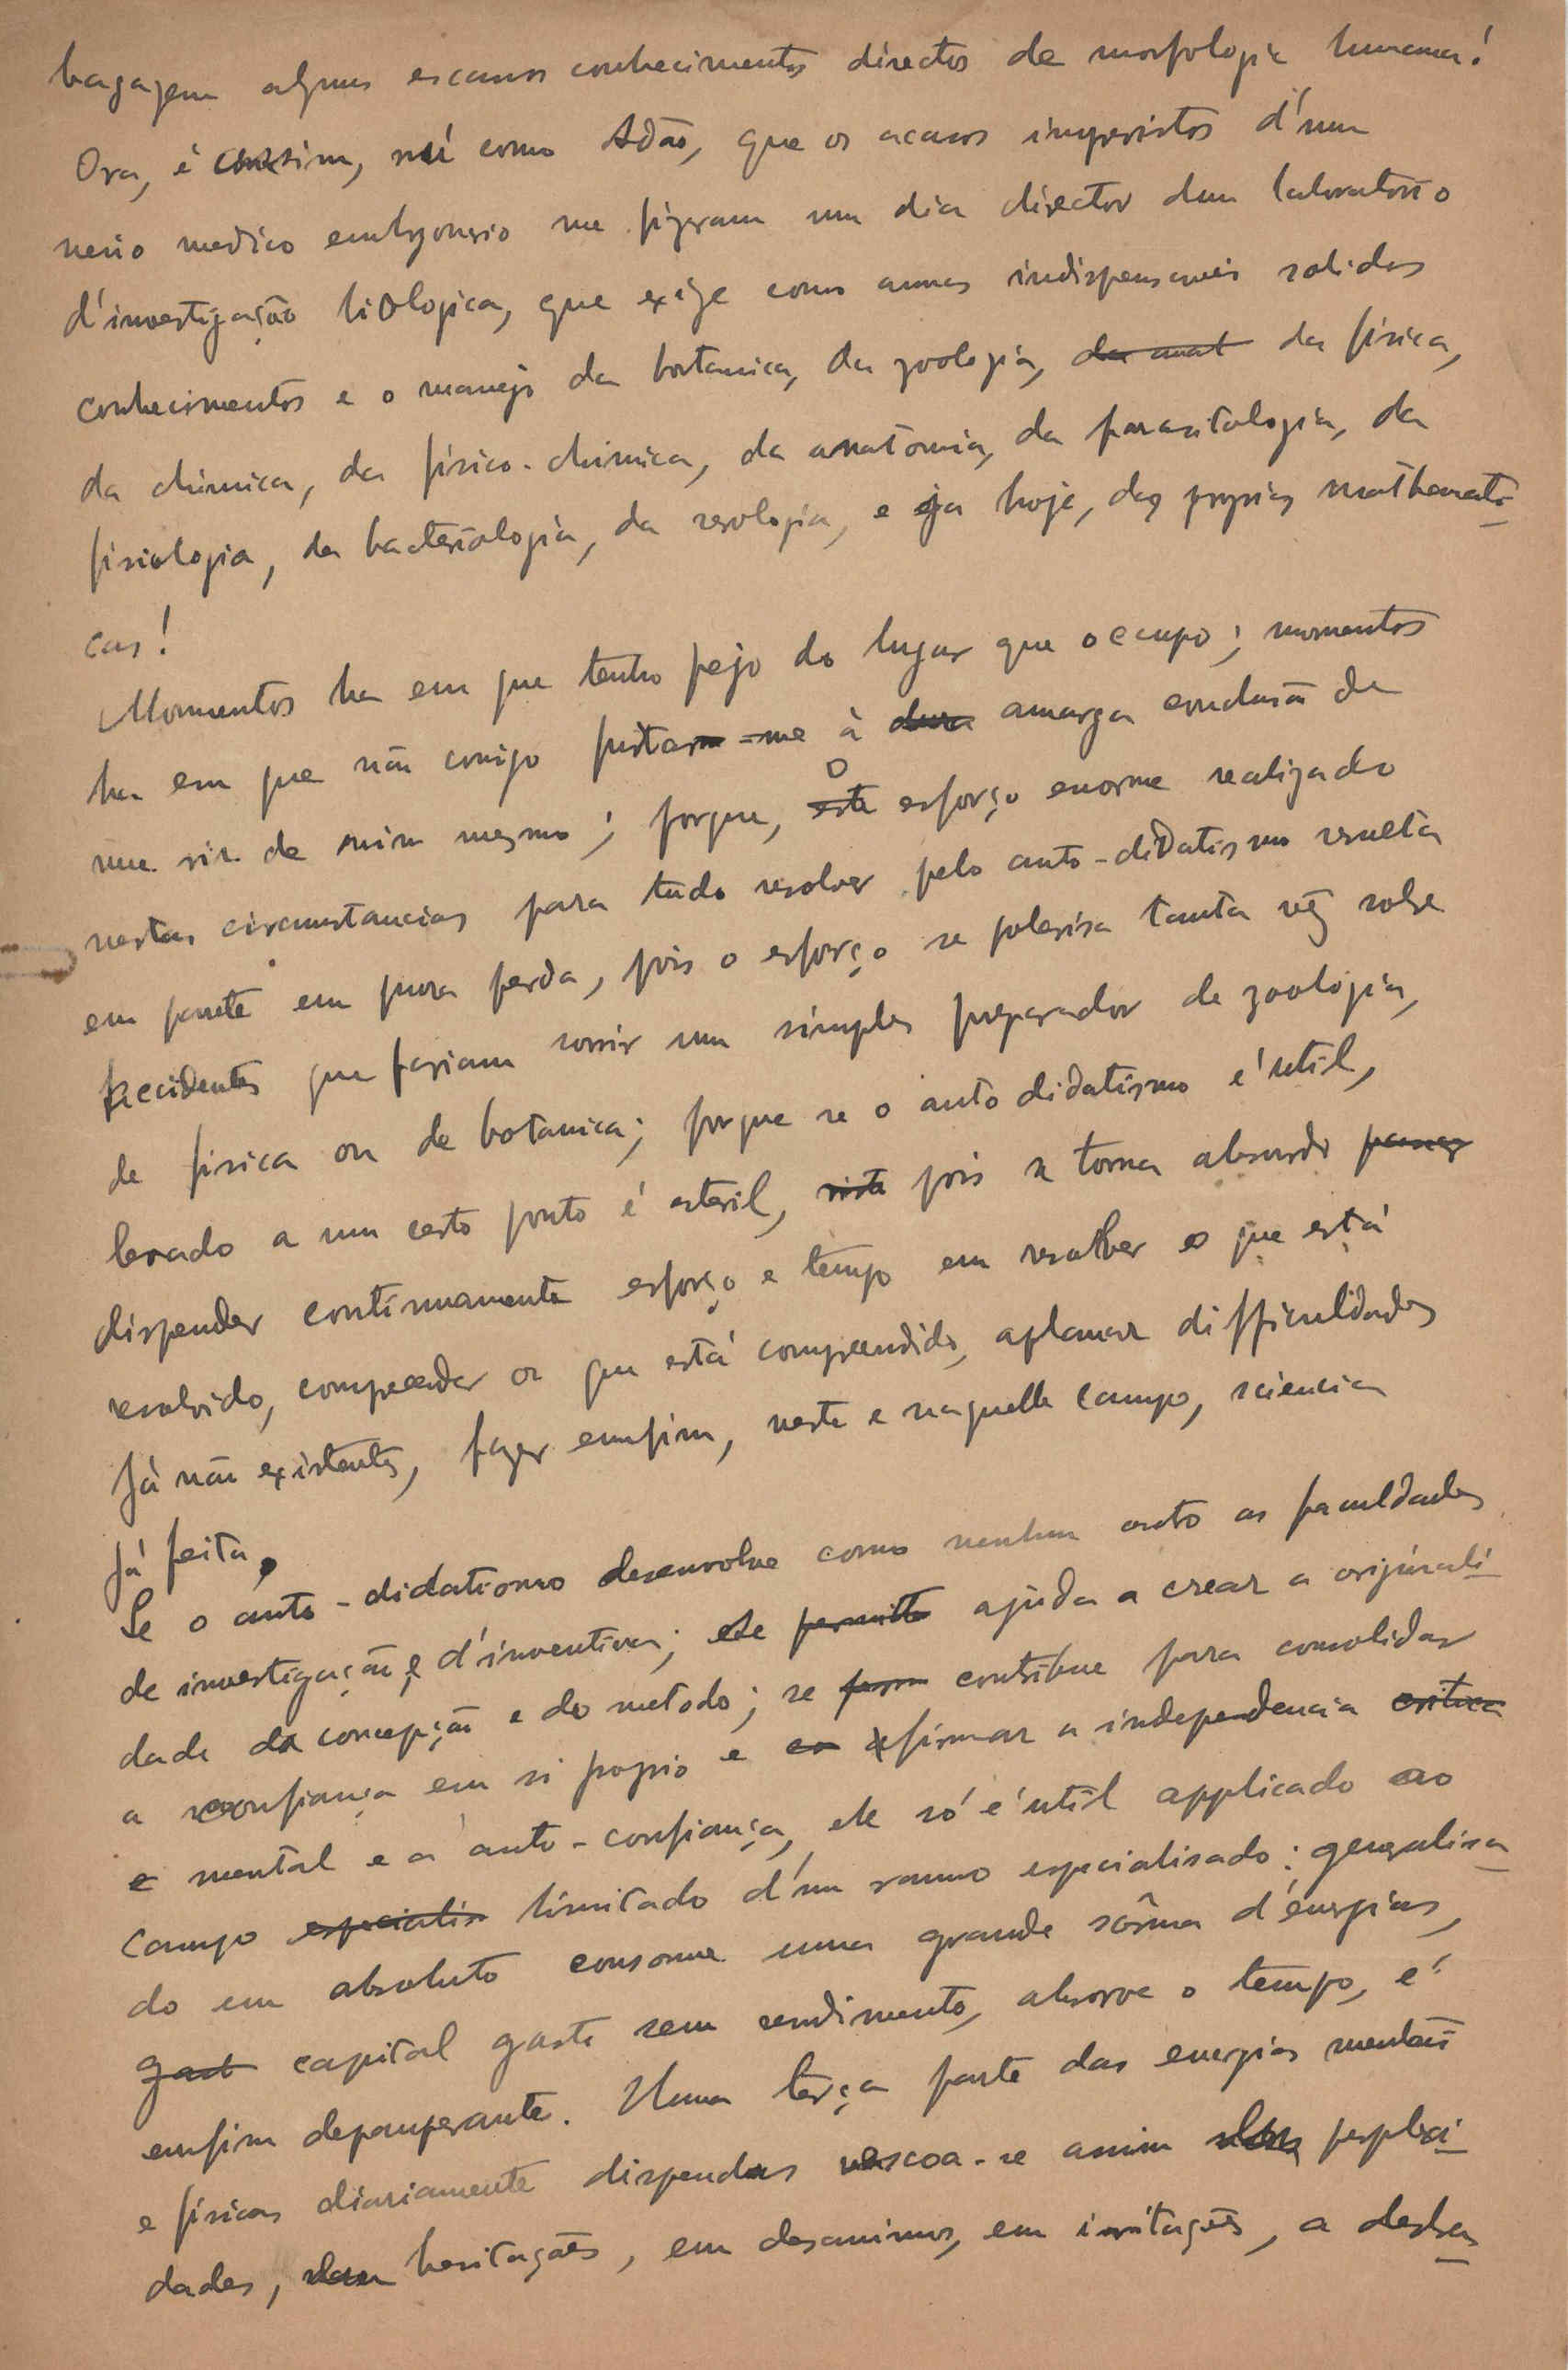 bagagem alguns escassos conhecimentos directos de morfologia humana!
Ora, é assim, nú como Adão, que os acasos imprevistos d'um
meio medico embryonario me fizeram um dia director dum laboratorio
d'investigação biologica, que exige como armas indispensaveis solidos
conhecimentos e o manejo da botanica, da zoologia, da anat da fisica,
da chimica, da fisico-chimica, da anatomia, da parasitologia, da
fisiologia, da bacteriologia, da serologia, e ja hoje, das proprias mathemati-
cas!
Momentos ha em que tenho pejo do lugar que occupo; momentos
ha em que não consigo furtar-me à dura amarga conclusão de
me rir de mim mesmo; porque, este o esforço enorme realizado
nestas circumstancias para tudo resolver pelo auto-didatismo resulta
em parte em pura perda, pois o esforço se polarisa tanta vez sobre
incidentes que fariam sorrir um simples preparador de zoologia,
de fisica ou de botanica; porque se o auto didatismo é util,
levado a um certo ponto é esteril, visto pois se torna absurdo
dispender continuamente esforço e tempo em resolver o que está
resolvido, comprender o que está comprendido, aplanar difficuldades
já não existentes, fazer emfim, neste e naquelle campo, sciencia
já feita.
Se o auto-didatismo desenvolve como nenhum outo as faculdades
de investigação e d'inventiva; se permitte ajuda a crear a originali-
dade da concepção e do metodo; se contribue para consolidar
a confiança em si propio e firmar a independencia critica
e mental e a auto-confiança, ele só é util applicado ao
campo especialis limitado d'um ramo especialisado: generalisa-
do em absoluto consome uma grande sôma d'énergias,
gast capital gasto sem rendimento, absorve o tempo, é
emfim depauperante. Uma terça parte das energias mentais
e fisicas diariamente dispendas escoa-se assim perplexi-
dades, hesitações, em desanimos, em irritações, a desba-